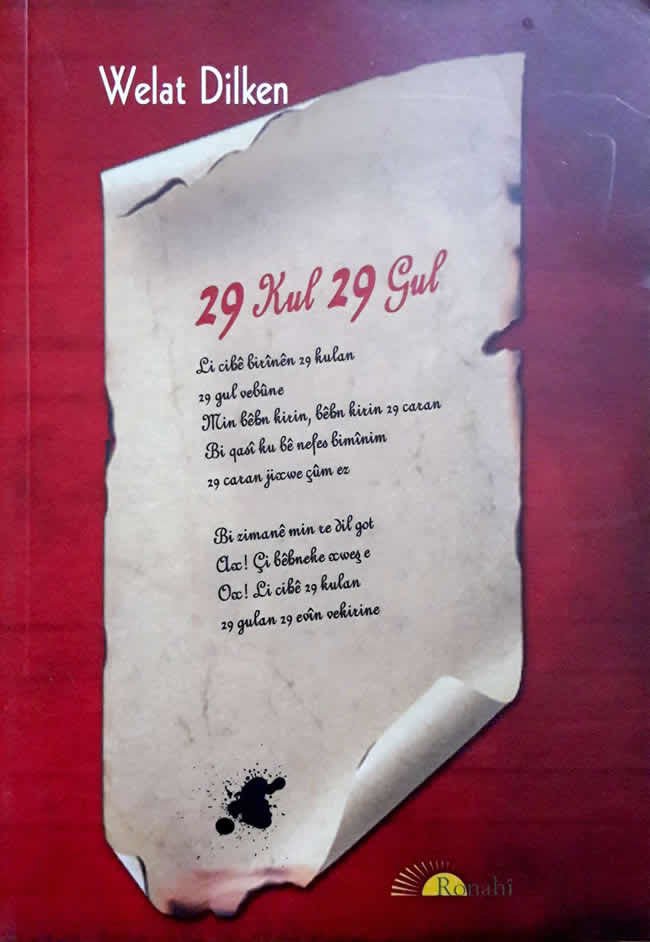 Welat Dilken
29 Kul 29 Gul
Li cibê birînên 29 kulan
29 gul vebûne
Min bêbn kirin, bêbn kirin 29 caran
Bi qasî ku bê nefes bimînim
29 caran jixwe çûm ez
Bi zimanê min re dil got
Ax! Çi bêbneke xweş e
Ox! Li cibê 29 kulan
29 gulan 29 evîn vekirine
Ronahî